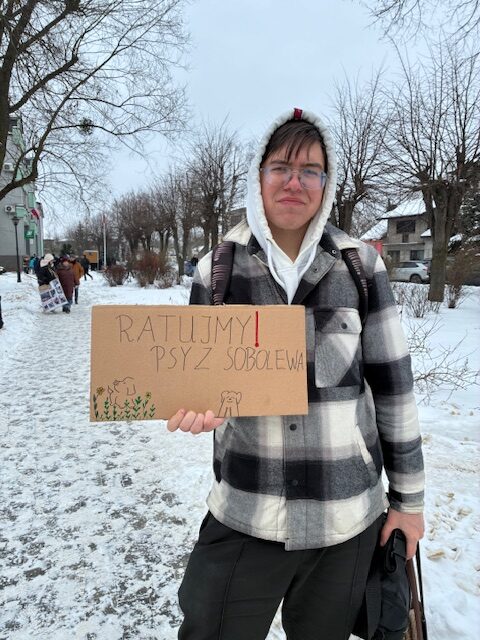 RATUJMY!
PSY Z SOBOLEWA